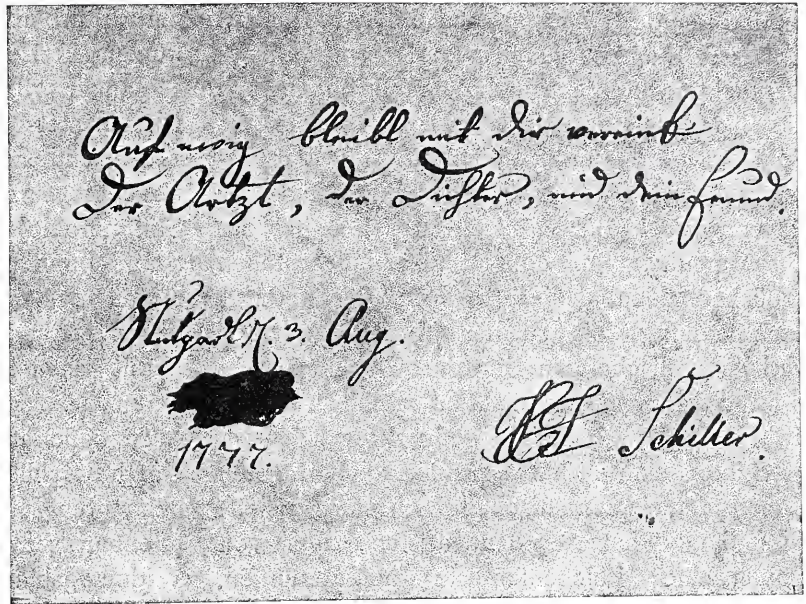 Auf ewig bleibt mit dir vereint
Der Artzt, der Dichter, und dein Freund.
Stutgardt. 3. Aug.
1777.
Schiller.